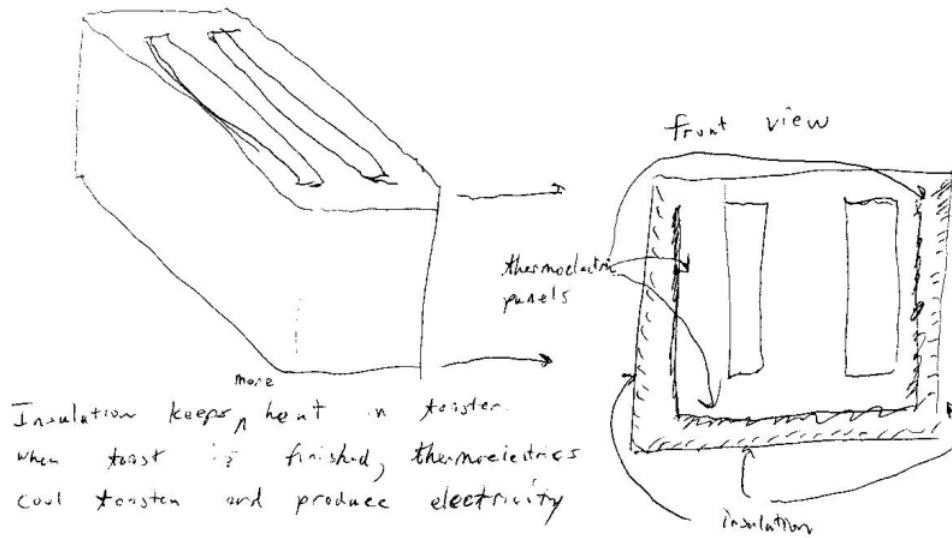 front view
thermoelectric
panels
more
Insulation keeps ^ heat in toaster.
when toast is finished, thermoelectrics
cool toaster and produce electricity
insulation